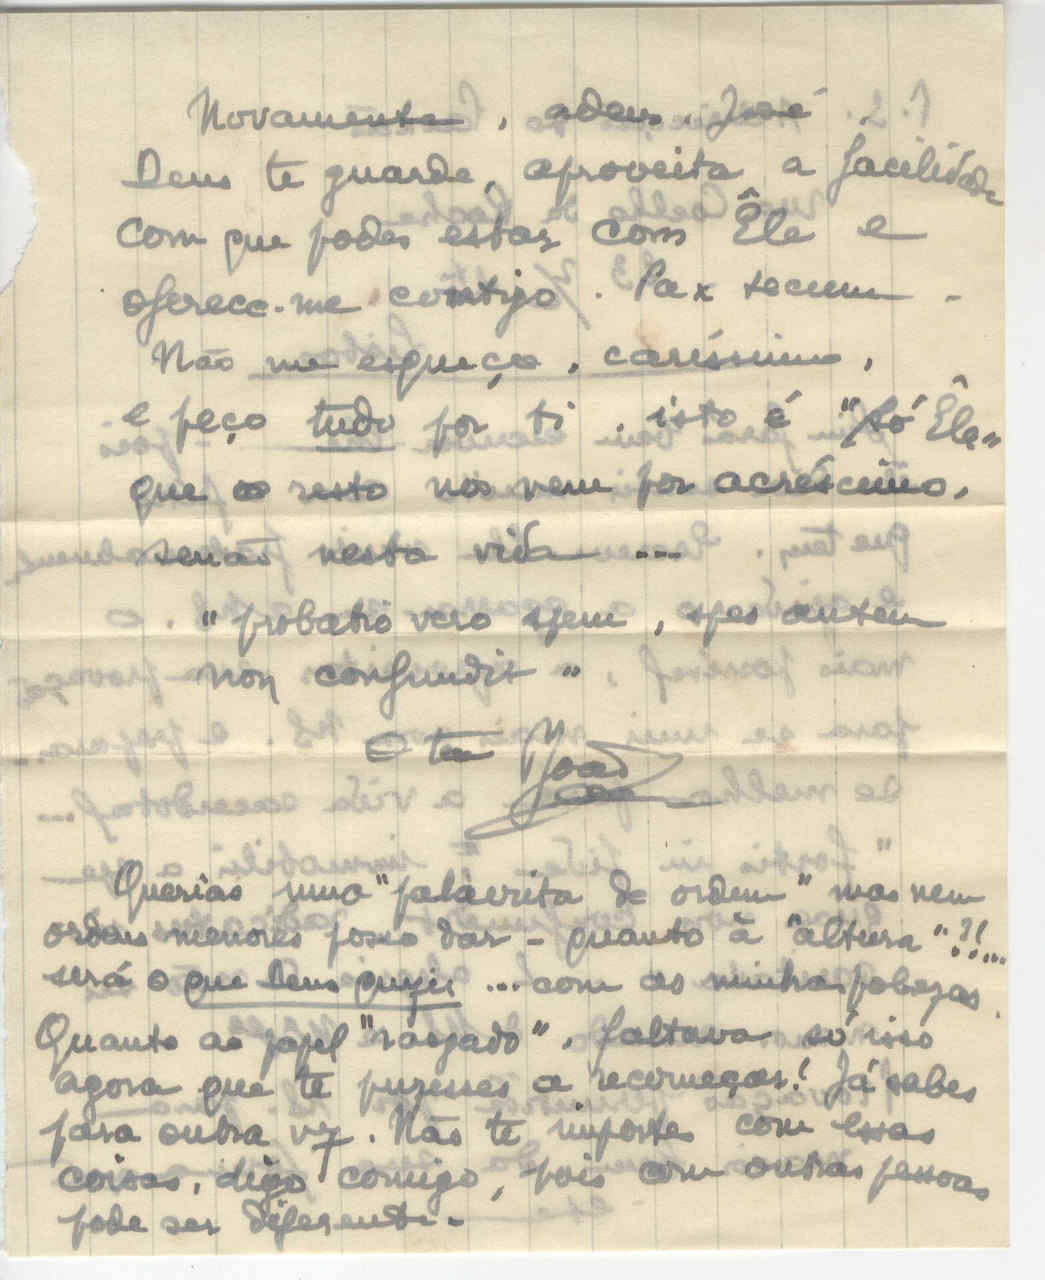 Novamente, adeus, José
Deus te guarde, aproveita a facilidade
com que podes estar com Êle e
oferece-me contigo. Pax tecum -
Não me esqueço, caríssimo,
e peço tudo por ti, isto é "Só Êle"
que o resto nos vem por acréscimo,
senão nesta vida ...
"probatio vero spem, spes autem
non confundit"
O teu João
Querias uma "palavrita de ordem" mas nem
ordens menores posso dar - quanto à "altura"?!!...
será o que Deus quizer ... com as minhas pobrezas.
Quanto ao papel "rasgado", faltava só isso
agora que te puzesses a recomeçar! Já sabes
para outra vez. Não te importes com essas
coisas, digo comigo, pois com outras pessoas
pode ser diferente.